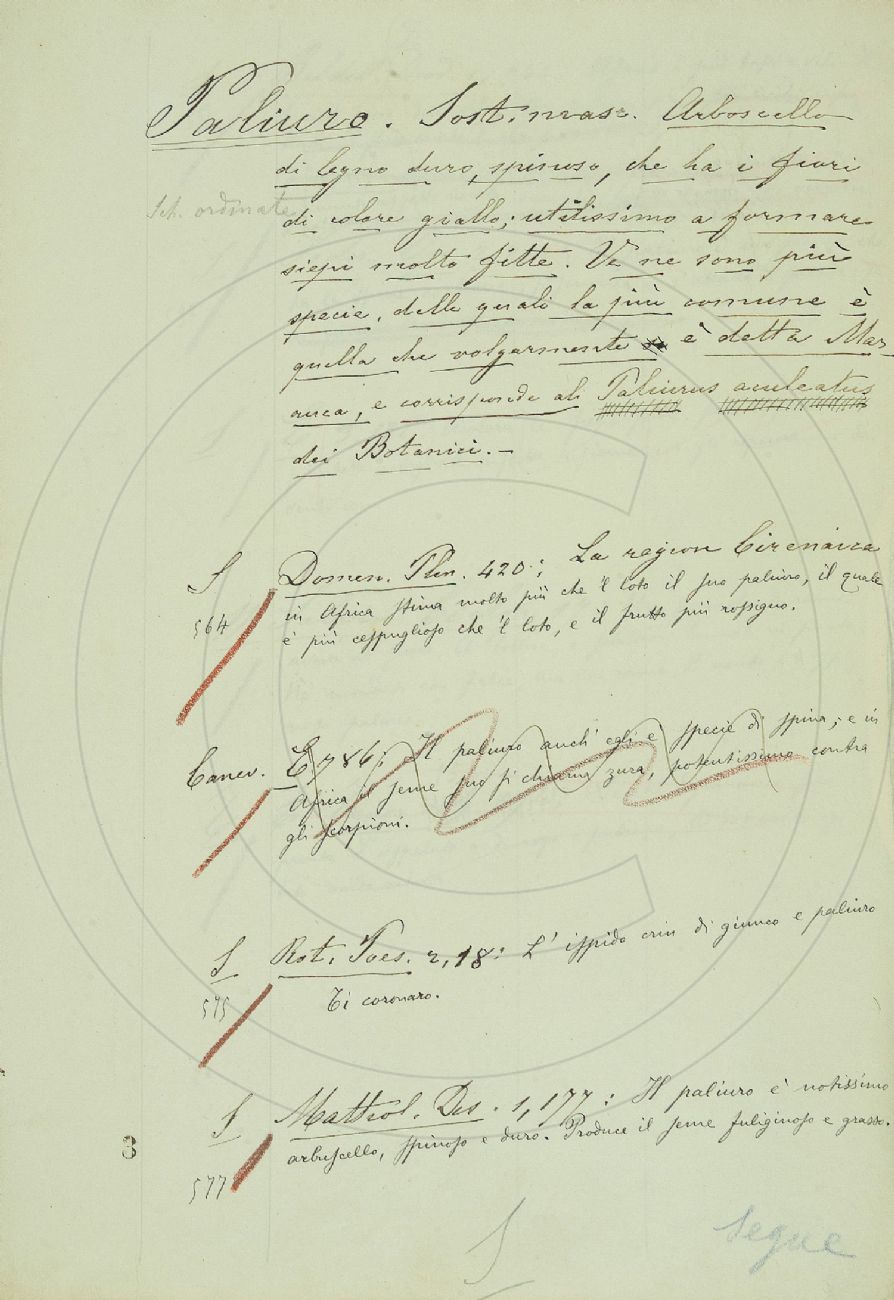 Paliuro. Sost. masc. Arboscello
di legno duro, spinoso, che ha i fiori
Sch. ordinate
di colore giallo; utilissimo a formare
siepi molto fitte. Ve ne sono più
specie, delle quali la più comune è
quella che volgarmente è detta Mar-
auca, e corrisponde al Paliurus aculeatus
dei Botanici.–
S Domen. Plin. 420: La region Cirenaica
in Africa stima molto più che 'l loto il suo paliuro, il quale
564 è più cespuglioso che 'l loto, e il frutto più rossigno.
Canev. E, 786: Il paliuro anch' egli è specie di spina; e in
Africa il seme suo si chiama zura, potentissimo contra
gli scorpioni.
S Rot. Poes. 2, 18: L' ispido crin di giunco e paliuro
575 Ti coronaro.
S Mattiol. Dis. 1, 177: Il paliuro è notissimo
arbuscello, spinoso e duro. Produce il seme fuliginoso e grasso.
577
8
S
Segue